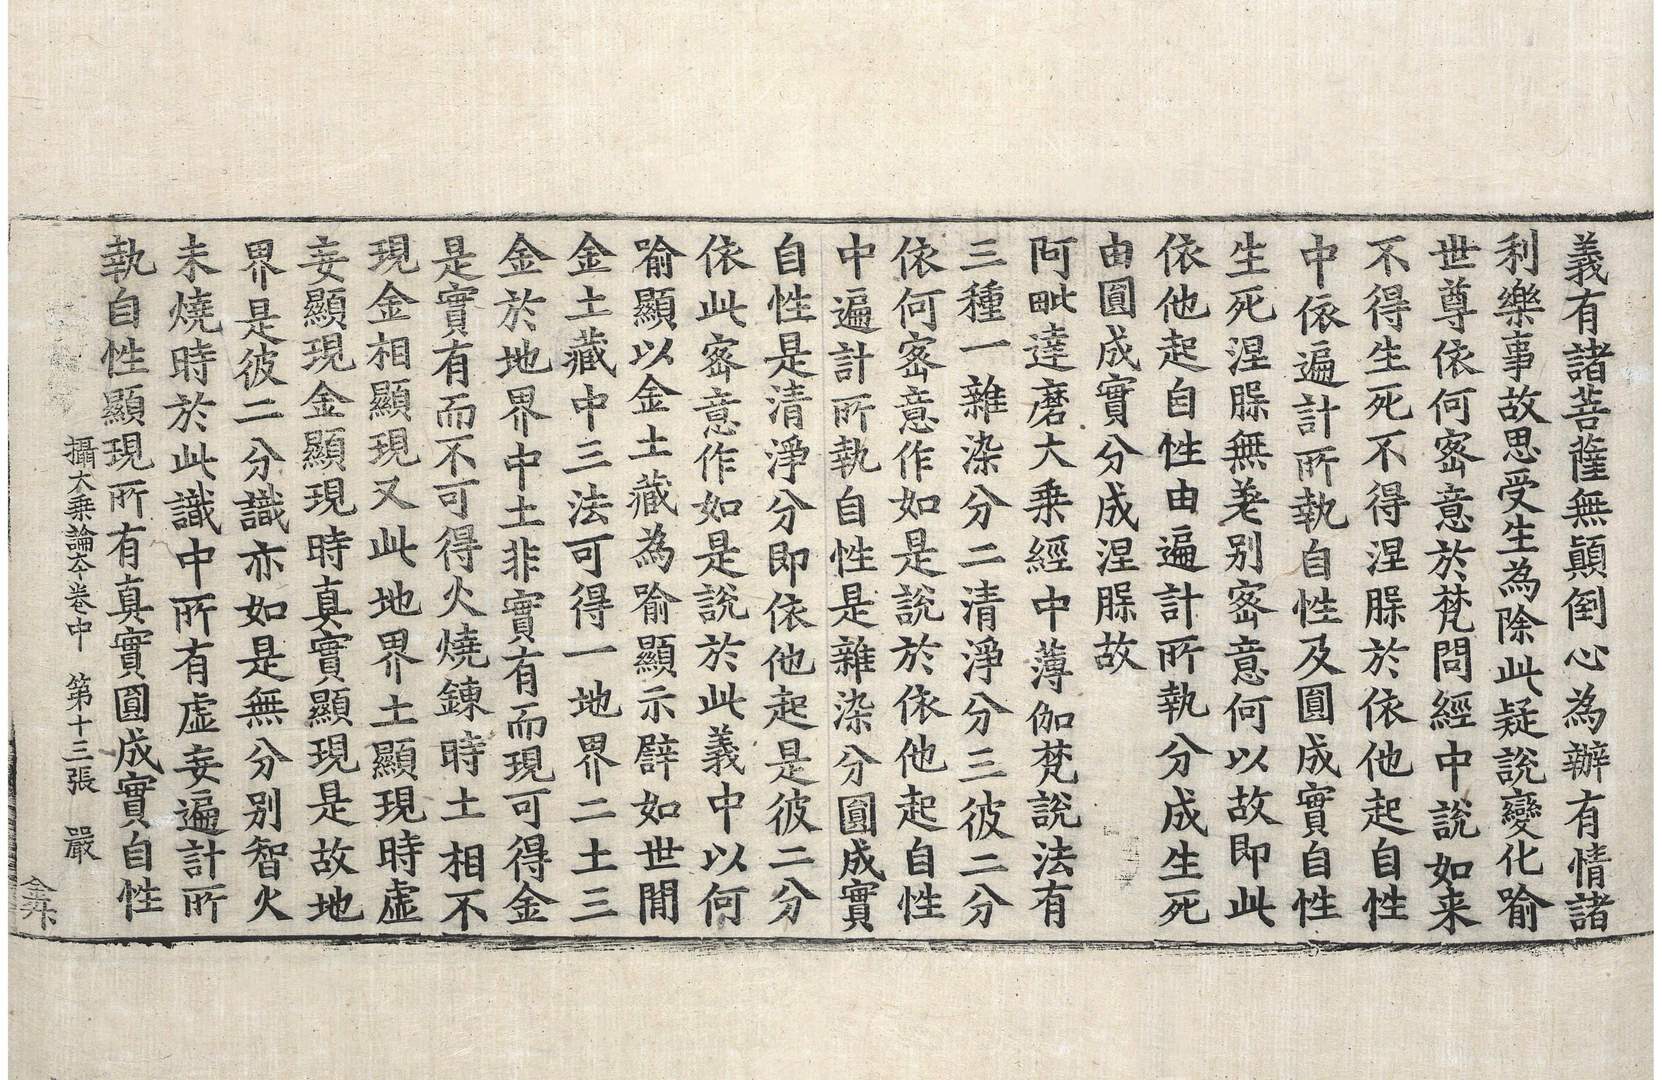 義有諸菩薩無顛倒心為辦有情諸
利樂事故思受生為除此疑說變化喻
世尊依何密意於梵問經中說如来
不得生死不得涅槃於依他起自性
中依遍計所執自性及圓成實自性
生死涅槃無差別密意何以故即此
依他起自性由遍計所執分成生死
由圓成實分成涅槃故
阿毗達磨大乘經中薄伽梵說法有
三種一雜染分二清淨分三彼二分
依何密意作如是說於依他起自性
中遍計所執自性是雜染分圓成實
自性是清淨分即依他起是彼二分
依此密意作如是說於此義中以何
喻顯以金土藏為喻顯示譬如世間
金土藏中三法可得一地界二土三
金於地界中土非實有而現可得金
是實有而不可得火燒鍊時土相不
現金相顯現又此地界土顯現時虛
妄顯現金顯現時真實顯現是故地
界是彼二分識亦如是無分別智火
未燒時於此識中所有虛妄遍計所
執自性顯現所有真實圓成實自性
攝大乘論本卷中 第十三張 嚴